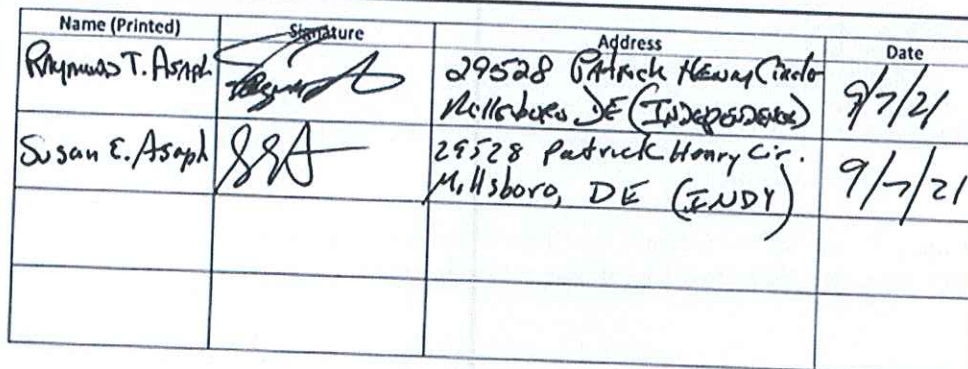 Name (Printed) Signature Address Date
Raymund T. Asaph 29528 Patrick Henry Circle 9/7/21
Millsboro DE (INDEPENDENCE)
Susan E. Asaph SSA 29528 Patrick Henry Cir. 9/7/21
Millsboro, DE (INDY)